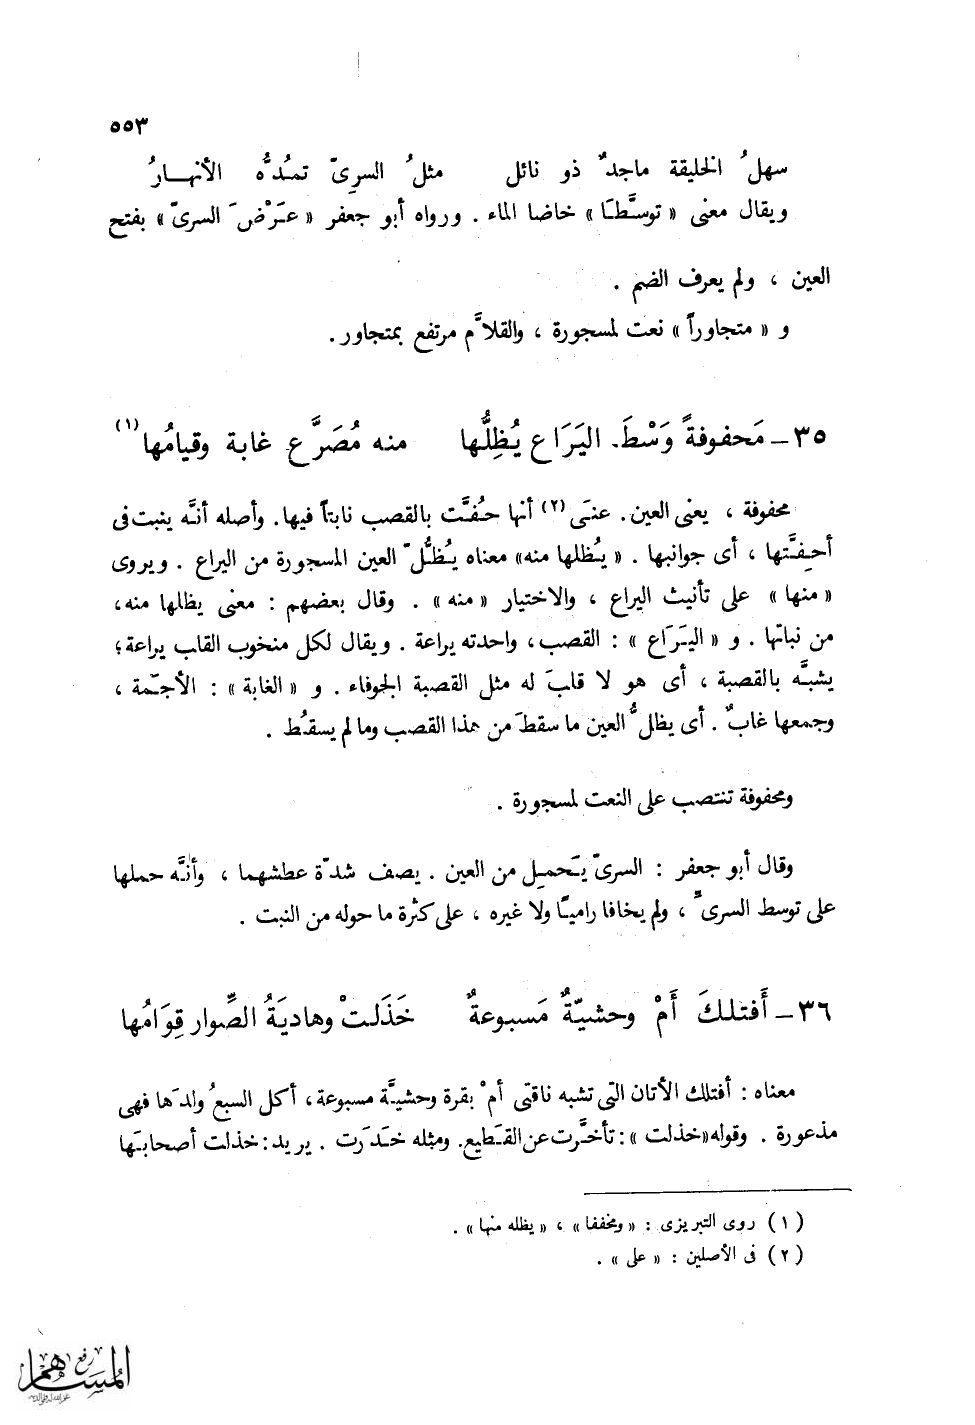 ٥٥٣
سهلُ الخليقة ماجدٌ ذو نائل مثلُ السرِىّ تمـُدُّه الأنهـــارُ
ويقال معنى « توسـَّطـَا » خاضا الماء . ورواه أبو جعفر « عـَرْضَ السرىّ » بفتح
العين ، ولم يعرف الضم .
و « متجاوراً » نعت لمسجورة ، والقلاَّم مرتفع بمتجاور .
٣٥ – مَحفوفةً وَسْطَ اليَرَاع يُظِلُّها منه مُصَرَّع غابة وقيامُها (١)
محفوفة ، يعنى العين . عنـَى (٢) أنها حـُفـَّت بالقصب نابتاً فيها . وأصله أنـَّه ينبت فى
أحـِفـَّتها ، أى جوانبها . « يـُظلها منه » معناه يـُظـُلّ العين المسجورة من اليراع . ويروى
« منها » على تأنيث اليراع ، والاختيار « منه » . وقال بعضهم : معنى يظلها منه ،
من نباتها . و « اليـَرَاع » : القصب ، واحدته يراعة . ويقال لكل منخوب القلب يراعة ؛
يشبـَّه بالقصبة ، أى هو لا قلبَ له مثل القصبة الجوفاء . و « الغابة » : الأجـَمة ،
وجمعها غابٌ . أى يظلُّ العين ما سقطَ من هذا القصب وما لم يسقـُط .
ومحفوفة تنتصب على النعت لمسجورة .
وقال أبو جعفر : السرىّ يـَحمـِل من العين . يصف شدّة عطشهما ، وأنـَّه حملها
على توسط السرىّ ، ولم يخافا راميـًا ولا غيره ، على كثرة ما حوله من النبت .
٣٦ – أَفتلكَ أَمْ وحشيّةٌ مَسبوعةٌ خَذَلتْ وهاديَةُ الصِّوار قِوَامُها
معناه : أفتلك الأتان التى تشبه ناقتى أمْ بقرة وحشيـَّة مسبوعة ، أكل السبعُ ولدَها فهى
مذعورة . وقوله « خذلت » : تأخـَّرت عن القـَطيع . ومثله خـَدَرَت . يريد : خذلت أصحابـَها
(١) روى التبريزى : « ومخففا » ، « يظله منها » .
(٢) فى الأصلين : « على » .
رفع
المساهم